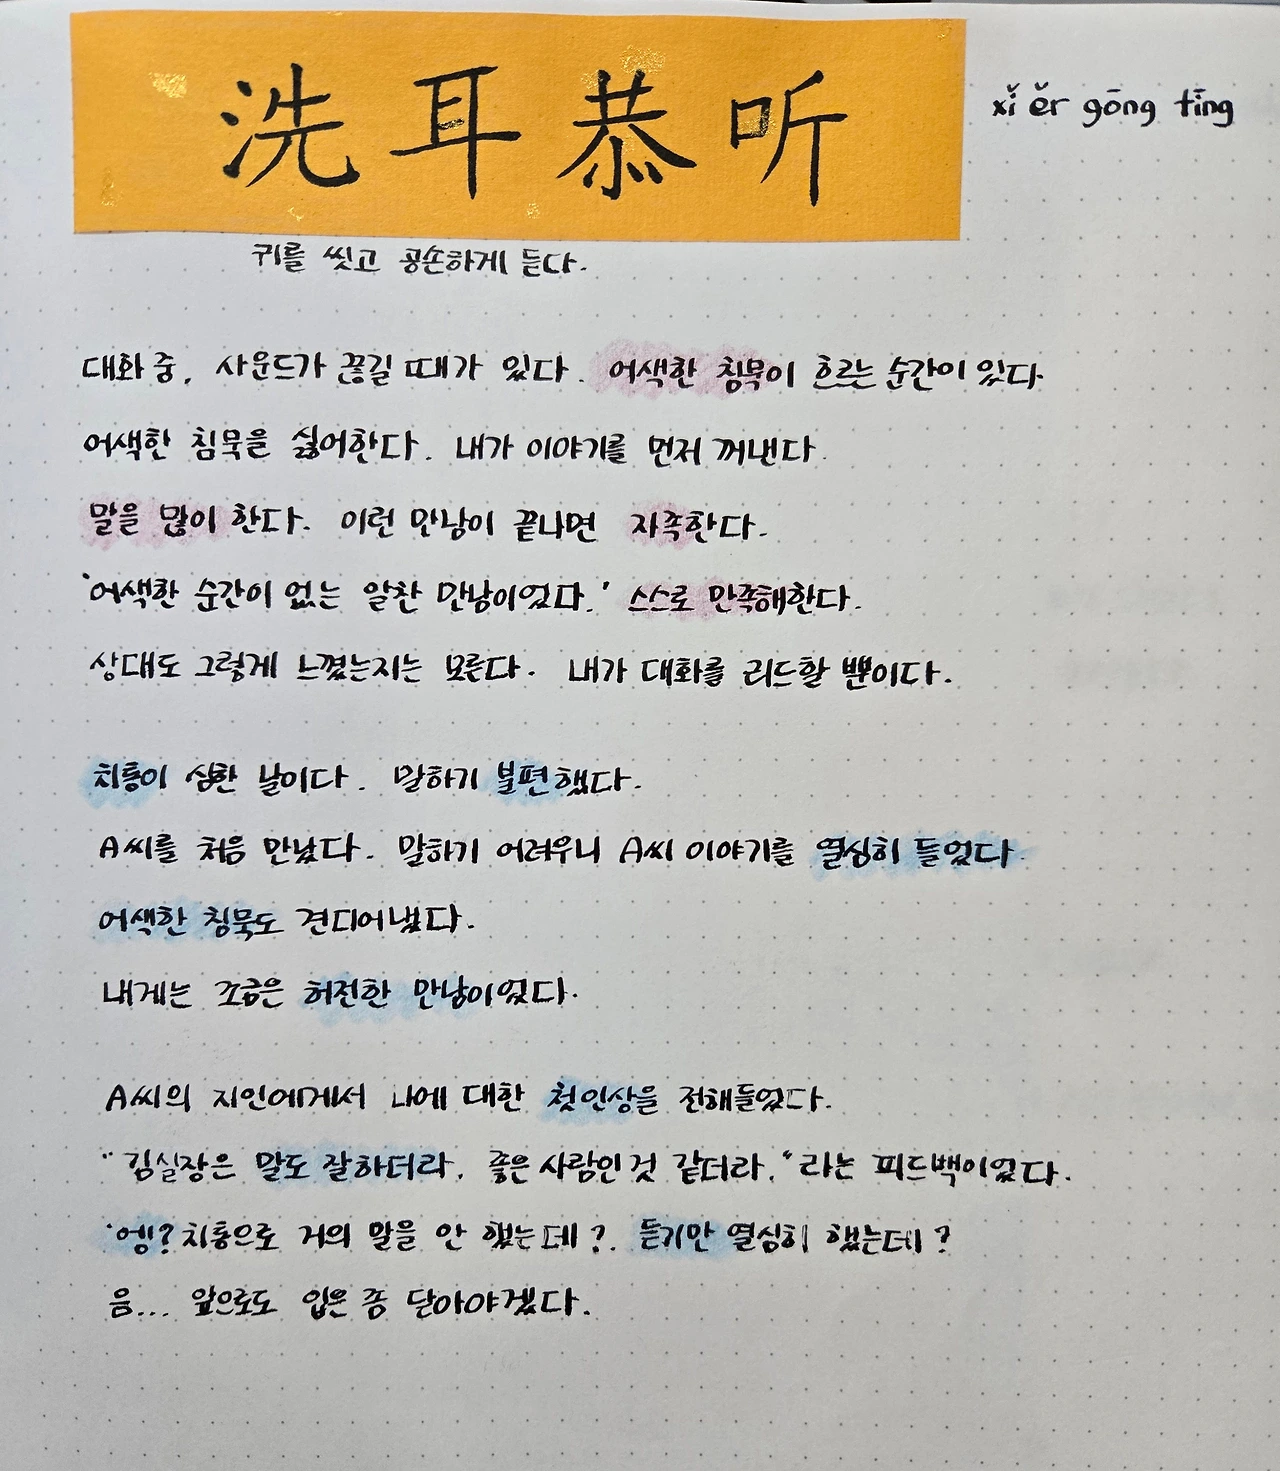 洗耳恭听
xǐ ěr gōng tīng
귀를 씻고 공손하게 듣다.
대화 중, 사운드가 끊길 때가 있다. 어색한 침묵이 흐르는 순간이 있다.
어색한 침묵을 싫어한다. 내가 이야기를 먼저 꺼낸다.
말을 많이 한다. 이런 만남이 끝나면 자족한다.
'어색한 순간이 없는 알찬 만남이었다.' 스스로 만족해한다.
상대도 그렇게 느꼈는지는 모른다. 내가 대화를 리드할 뿐이다.
치통이 심한 날이다. 말하기 불편했다.
A씨를 처음 만났다. 말하기 어려우니 A씨 이야기를 열심히 들었다.
어색한 침묵도 견디어냈다.
내게는 조금은 허전한 만남이었다.
A씨의 지인에게서 나에 대한 첫인상을 전해들었다.
"김실장은 말도 잘하더라. 좋은 사람인 것 같더라." 라는 피드백이었다.
'엥? 치통으로 거의 말을 안 했는데?. 듣기만 열심히 했는데?
음... 앞으로도 입은 좀 닫아야겠다.